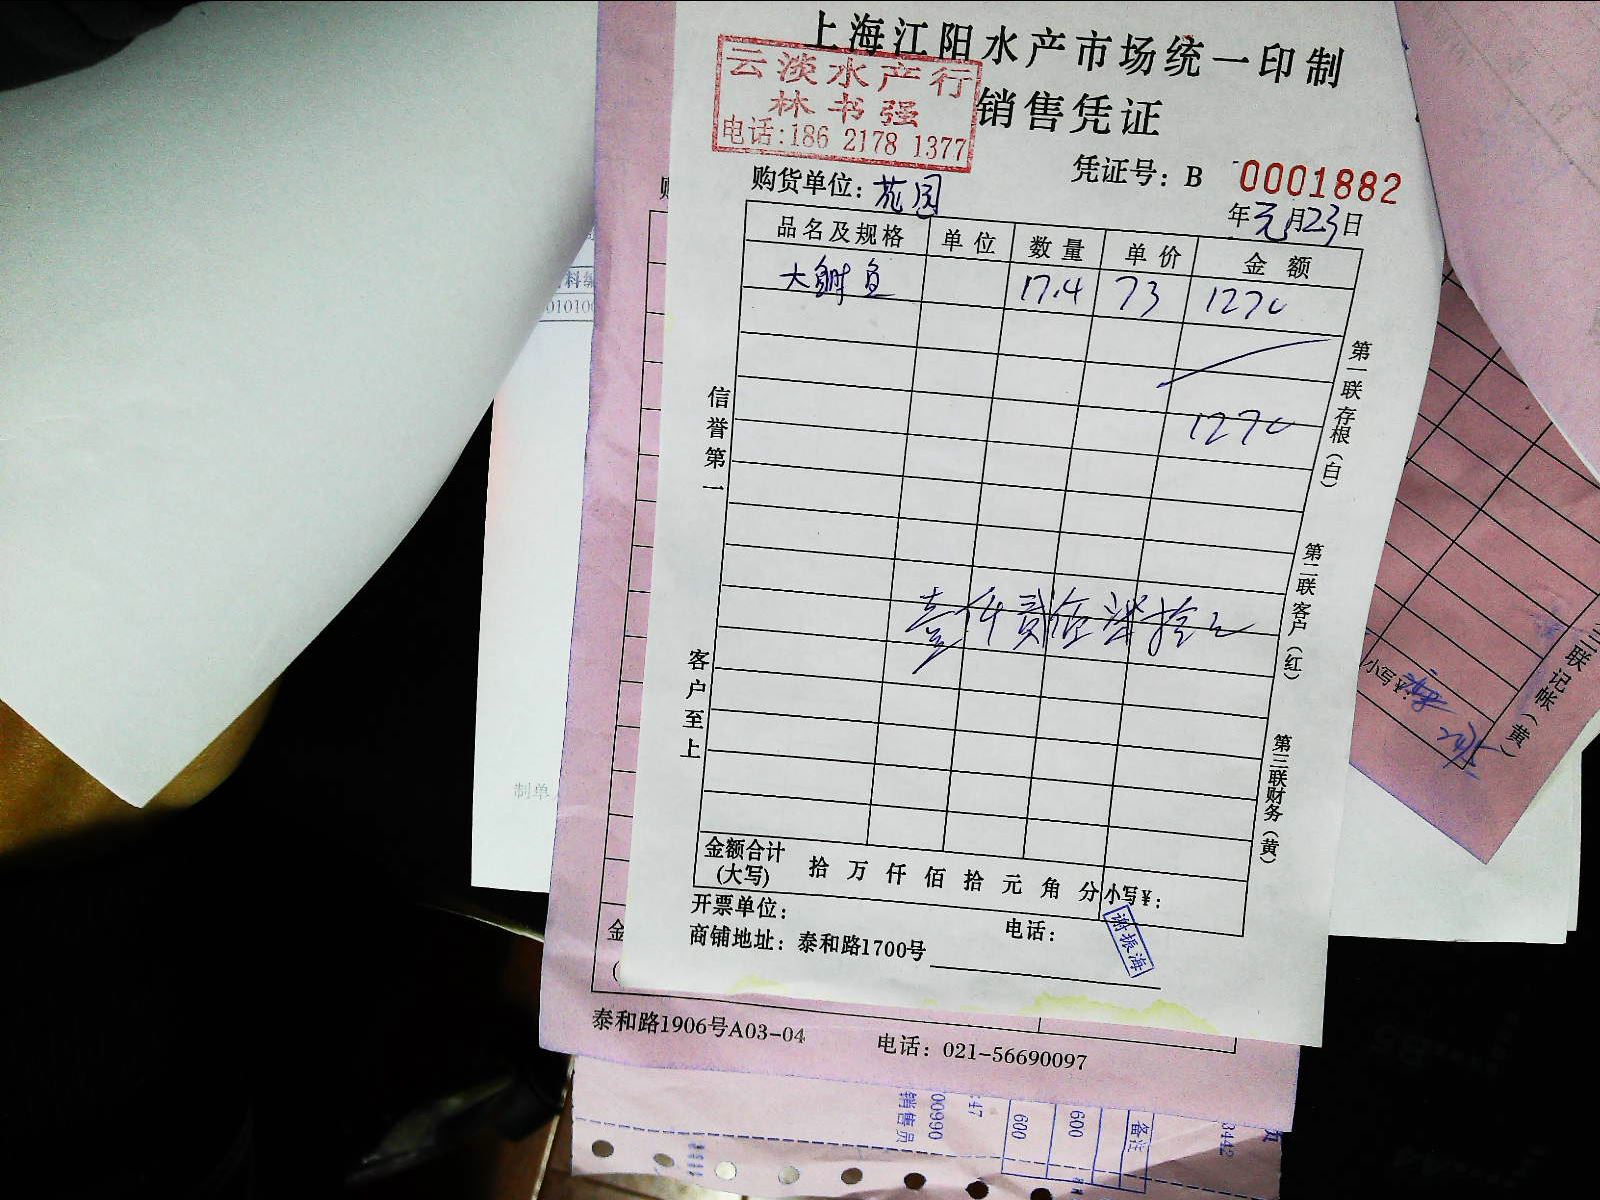 上海江阳水产市场统一印制
云淡水产行
林书强
电话:186 2178 1377
销售凭证
凭证号: B 0001882
购货单位: 苑园
年元月23日
品名及规格 单位 数量 单价 金额
大鲥鱼 17.4 73 1270
1270
壹仟贰佰柒拾元
信誉第一
客户至上
第一联存根(白)
第二联客户(红)
第三联财务(黄)
金额合计
(大写) 拾 万 仟 佰 拾 元 角 分 小写¥:
开票单位: 电话:
谢振海
商铺地址: 泰和路1700号
泰和路1906号A03-04 电话: 021-56690097
制单
小写¥:
三联记帐(黄)
00990
销售员
:47
600
600
备注
3442